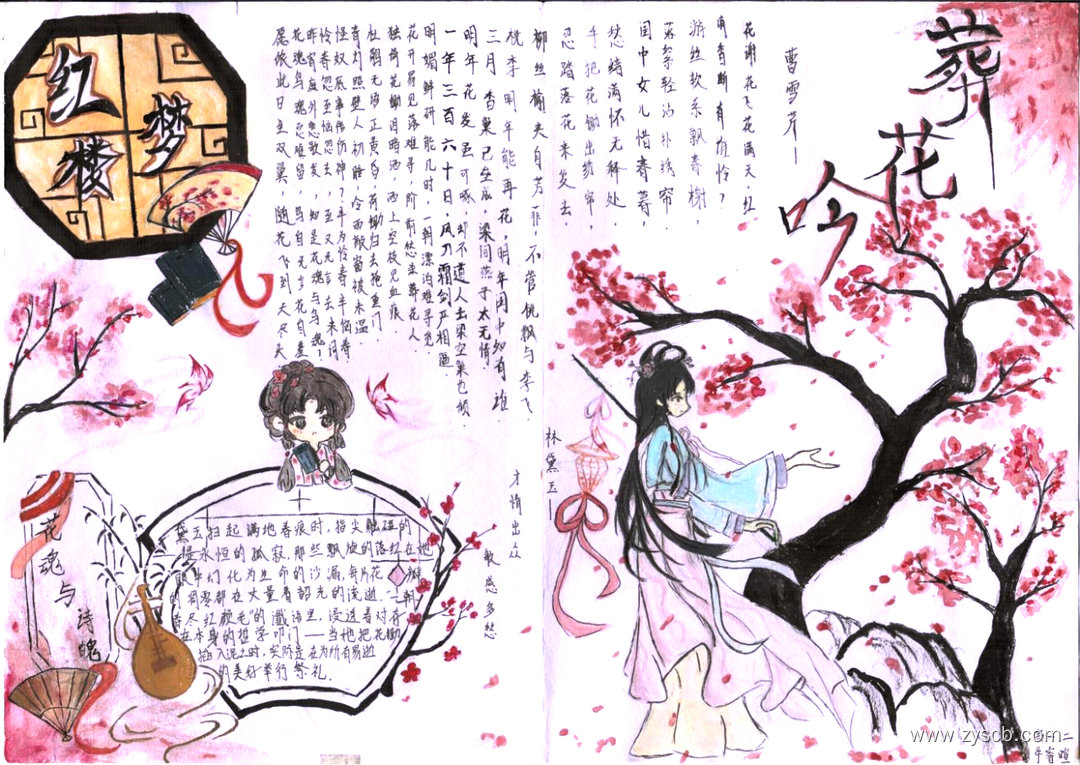 葬花吟
曹雪芹—
花谢花飞花满天,红
消香断有谁怜?
游丝软系飘春榭,
落絮轻沾扑绣帘.
闺中女儿惜春暮,
愁绪满怀无释处
手把花锄出绣帘,
忍踏落花来复去.
柳丝榆荚自芳菲,不管桃飘与李飞.
桃李明年能再花,明年闺中知有谁
三月香巢已垒成,梁间燕子太无情.
明年花发虽可啄,却不道人去梁空巢也倾.
一年三百六十日,风刀霜剑严相逼.
明媚鲜妍能几时,一朝漂泊难寻觅.
花开易见落难寻,阶前愁杀葬花人.
独倚花锄泪暗洒,洒上空枝见血痕.
杜鹃无语正黄昏,荷锄归去掩重门
青灯照壁人初睡,冷雨敲窗被未温
怪奴底事倍伤神?半为怜春半恼春
怜春忽至恼忽去,至又无言去未闻
昨宵庭外悲歌发,知是花魂与鸟魂?
花魂鸟魂总难留,鸟自无言花自羞
愿侬此日生双翼,随花飞到天尽头
红楼梦
林黛玉—
才情出众
敏感多愁
花魂与诗魄
黛玉扫起满地春痕时,指尖触碰的
是永恒的孤寂.那些飘旋的落红在她
眼中幻化为生命的沙漏,每片花瓣
的凋零都在丈量着韶光的流逝."一朝
春尽红颜老"的谶语里,浸透着对存
在本身的哲学叩门——当她把花锄
插入泥土时,实际是在为所有易逝
的美好举行祭礼.
www.zyscb.com